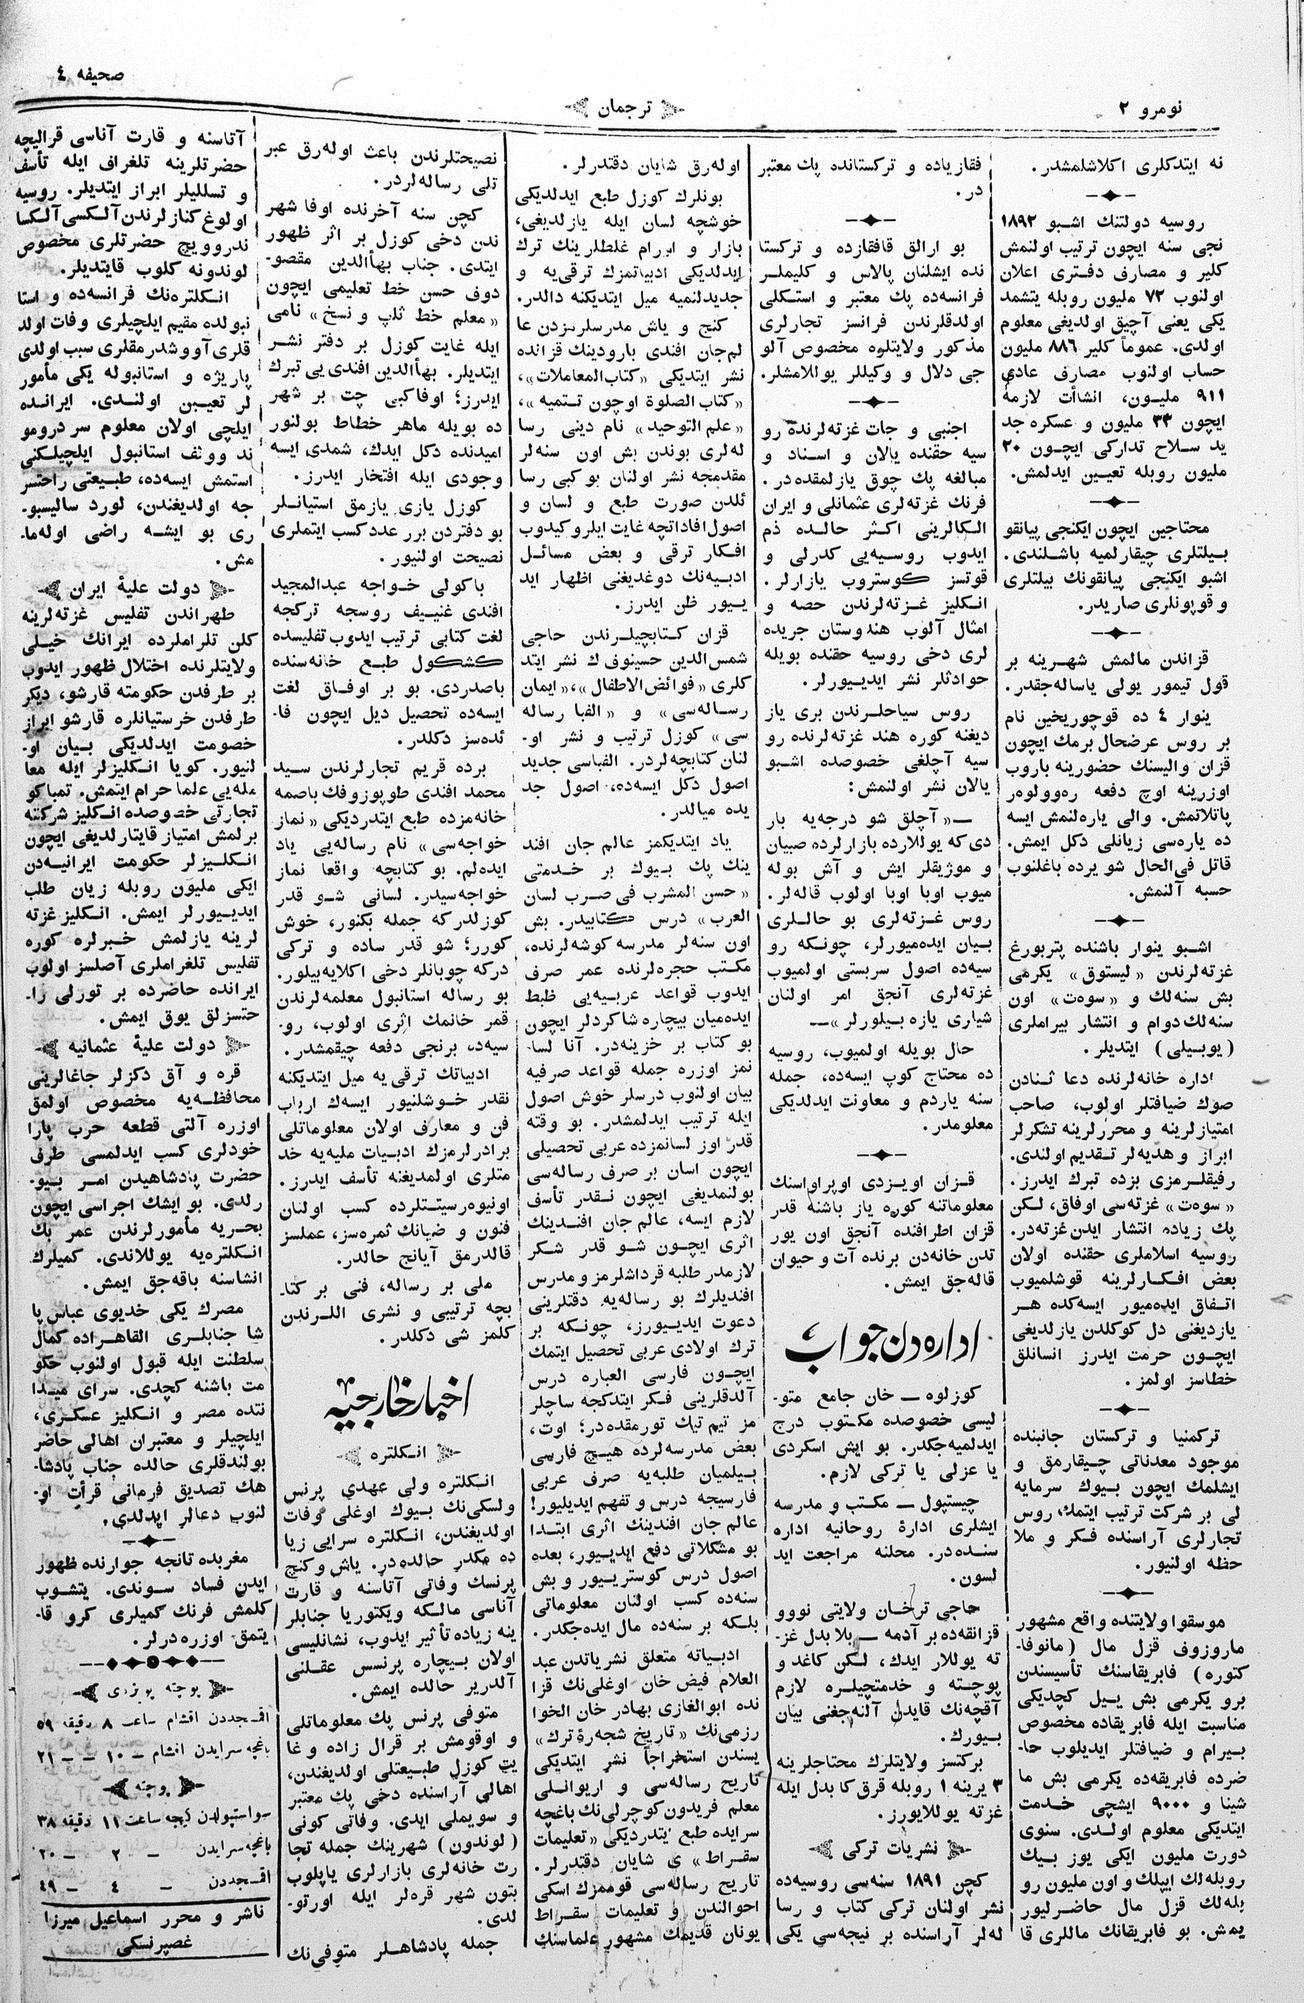 نومرو ٢
ترجمان
صحيفه ٤
نه ايتدكلرى اكلاشلمشدر.
روسيه دولتنك اشبو ١٨٩٢
نجى سنه ايچون ترتيب اولنمش
كلير و مصارف دفترى اعلان
اولنوب ٧٢ مليون روبله يتشمد
يكى يعنى آچيق اولديغى معلوم
اولدى. عموماً كلير ٨٨٦ مليون
حساب اولنوب مصارف عادى
٩١١ مليون، انشاآت لازمهٔ
ايچون ٣٣ مليون و عسكره جد
يد سلاح تداركى ايچون ٢٠
مليون روبله تعيين ايدلمش.
محتاجين ايچون ايكنجى پيانقو
بيلتلرى چيقارلميه باشلندى.
اشبو ايكنجى پيانقونك بيلتلرى
و قوپونلرى صاريدر.
قزاندن مالمش شهرينه بر
قول تيمور يولى ياساله جقدر.
ينوار ٤ ده قوچوريخين نام
بر روس عرضحال برمك ايچون
قزان واليسنك حضورينه باروب
اوزرينه اوچ دفعه ره‌وولوه‌ر
پاتلاتمش. والى ياره‌لنمش ايسه
ده ياره‌سى زيانلى دكل ايمش.
قاتل فى الحال شو يرده باغلنوب
حبسه آلنمش.
اشبو ينوار باشنده پتربورغ
غزته‌لرندن «ليستوق» يكرمى
بش سنه‌لك و «سوه‌ت» اون
سنه‌لك دوام و انتشار بيراملرى
(يوبيلى) ايتديلر.
اداره خانه‌لرنده دعا ثنادن
صوك ضيافتلر اولوب، صاحب
امتيازلرينه و محررلرينه تشكرلر
ابراز و هديه‌لر تقديم اولندى.
رفيقلرمزى بزده تبرك ايدرز.
«سوه‌ت» غزته‌سى اوفاق، لكن
پك زياده انتشار ايدن غزته‌در.
روسيه اسلاملرى حقنده اولان
بعض افكارلرينه قوشلميوب
اتفاق ايده‌ميور ايسه‌كده هر
يازديغنى دل كوكلدن يازلديغى
ايچون حرمت ايدرز انسانلق
خطاسز اولمز.
تركمنيا و تركستان جانبنده
موجود معدناتى چيقارمق و
ايشلمك ايچون بيوك سرمايه
لى بر شركت ترتيب ايتمك، روس
تجارلرى آراسنده فكر و ملا
حظه اولنيور.
موسقوا ولايتنده واقع مشهور
ماروزوف قزل مال (مانوفا-
كتوره) فابريقاسنك تأسيسندن
برو يكرمى بش ييل كچديكى
مناسبت ايله فابريقاده مخصوص
بيرام و ضيافتلر ايديلوب حا-
ضرده فابريقه‌ده يكرمى بش ما
شينا و ٩٠٠٠ ايشچى خدمت
ايتديكى معلوم اولدى. سنوى
دورت مليون ايكى يوز بيك
روبله‌لك ايپلك و اون مليون رو
بله‌لك قزل مال حاضرليور
يمش. بو فابريقانك ماللرى قا
فقازياده و تركستانده پك معتبر
در.
بو ارالق قافقازده و تركستا
نده ايشلنان پالاس و كليملر
فرانسه‌ده پك معتبر و استكلى
اولدقلرندن فرانسز تجارلرى
مذكور ولايتلره مخصوص آلو
جى دلال و وكيللر يوللامشلر.
اجنبى و جات غزته‌لرنده رو
سيه حقنده يالان و اسناد و
مبالغه پك چوق يازلمقده‌در.
فرنك غزته‌لرى عثمانلى و ايران
الكالرينى اكثر حالده ذم
ايدوب روسيه‌يى كدرلى و
قوتسز كوستروب يازارلر.
انكليز غزته‌لرندن حصه و
امثال آلوب هندوستان جريده
لرى دخى روسيه حقنده بويله
حوادثلر نشر ايديورلر.
روس سياحلرندن برى ياز
ديغنه كوره هند غزته‌لرنده رو
سيه آچلغى خصوصده اشبو
يالان نشر اولنمش:
— «آچلق شو درجه‌يه بار
دى كه يوللارده بازارلرده صبيان
و موژيقلر ايش و آش بوله
ميوب اوبا اوبا اولوب قاله‌لر.
روس غزته‌لرى بو حاللرى
بيان ايده‌ميورلر، چونكه رو
سيه‌ده اصول سربستى اولميوب
غزته‌لرى آنجق امر اولنان
شيارى يازه بيلورلر» —
حال بويله اولميوب، روسيه
ده محتاج كوپ ايسه‌ده، جمله
سنه ياردم و معاونت ايدلديكى
معلومدر.
قزان اويزدى اوپراواسنك
معلوماتنه كوره ياز باشنه قدر
قزان اطرافنده آنجق اون يور
تدن خانه‌دن برنده آت و حيوان
قاله‌جق ايمش.
اداره‌دن جواب
كوزلوه — خان جامع متو-
ليسى خصوصده مكتوب درج
ايدلميه‌جكدر. بو ايش اسكردى
يا عزلى يا تركى لازم.
چيستپول — مكتب و مدرسه
ايشلرى ادارهٔ روحانيه اداره
سنده‌در. محلنه مراجعت ايد
لسون.
حاجى ترخان ولايتى نووو
قزانقه‌ده بر آدمه — بلا بدل غز-
ته يوللار ايدك، لكن كاغد و
پوچته و خدمتچيلره لازم
آقچه‌نك قايدن آلنه‌جغنى بيان
بيورك.
بركتسز ولايتلرك محتاجلرينه
٣ يرينه ١ روبله قرق كا بدل ايله
غزته يوللايورز.
نشريات تركى
كچن ١٨٩١ سنه‌سى روسيه‌ده
نشر اولنان تركى كتاب و رسا
له‌لر آراسنده بر نيچه‌سى يكى
اوله‌رق شايان دقتدرلر.
بونلرك كوزل طبع ايدلديكى
خوشچه لسان ايله يازلديغى،
بازار و اورام غلطلرينك ترك
ايدلديكى ادبياتمزك ترقى‌يه و
جديدلنميه ميل ايتديكنه دالدر.
كنج و ياش مدرسلرمزدن عا
لم‌جان افندى بارودينك قزانده
نشر ايتديكى «كتاب المعاملات»،
«كتاب الصلوة اوچون تتميه»،
«علم التوحيد» نام دينى رسا
له‌لرى بوندن بش اون سنه‌لر
مقدمجه نشر اولنان بو كبى رسا
ئلدن صورت طبع و لسان و
اصول افاداتچه غايت ايلرو كيدوب
افكار ترقى و بعض مسائل
ادبيه‌نك دوغديغنى اظهار ايد
يور ظن ايدرز.
قزان كتابچيلرندن حاجى
شمس الدين حسينوف ك نشر ايتد
كلرى «فوائض الاطفال»، «ايمان
رساله‌سى» و «الفبا رساله
سى» كوزل ترتيب و نشر او-
لنان كتابچه‌لردر. الفباسى جديد
اصول دكل ايسه‌ده، اصول جد
يده ميالدر.
ياد ايتديكمز عالم جان افند
ينك پك بيوك بر خدمتى
«حسن المشرب فى صرب لسان
العرب» درس كتابيدر. بش
اون سنه‌لر مدرسه كوشه‌لرنده،
مكتب حجره‌لرنده عمر صرف
ايدوب قواعد عربيه‌يى ظبط
ايده‌ميان بيچاره شاكردلر ايچون
بو كتاب بر خزينه‌در. آنا لسا-
نمز اوزره جمله قواعد صرفيه
بيان اولنوب درسلر خوش اصول
ايله ترتيب ايدلمشدر. بو وقته
قدر اوز لسانمزده عربى تحصيلى
ايچون اسان بر صرف رساله‌سى
بولنمديغى ايچون نقدر تأسف
لازم ايسه، عالم جان افندينك
اثرى ايچون شو قدر شكر
لازمدر طلبه قرداشلرمز و مدرس
افنديلرك بو رساله‌يه دقتلرينى
دعوت ايديورز، چونكه بر
ترك اولادى عربى تحصيل ايتمك
ايچون فارسى العباره درس
آلدقلرينى فكر ايتدكجه ساچلر
مز تيم تيك تورمقده‌در؛ اوت،
بعض مدرسه‌لرده هيچ فارسى
بيلميان طلبه‌يه صرف عربى
فارسيجه درس و تفهم ايديليور!
عالم جان افندينك اثرى ابتدا
بو مشكلاتى دفع ايديور، بعده
اصول درس كوستريور و بش
سنه‌ده كسب اولنان معلوماتى
بلكه بر سنه‌ده مال ايده‌جكدر.
ادبياته متعلق نشرياتدن عبد
العلام فيض خان اوغلى‌نك قزا
نده ابوالغازى بهادر خان الخوا
رزمى‌نك «تاريخ شجرهٔ ترك»
يسندن استخراجاً نشر ايتديكى
تاريخ رساله‌سى و اريوانلى
معلم فريدون كوچرلى‌نك باغچه
سرايده طبع ايتدرديكى «تعليمات
سقراط» ى شايان دقتدرلر.
تاريخ رساله‌سى قوممزك اسكى
احوالندن و تعليمات سقراط
يونان قديمك مشهور علماسنك
نصيحتلرندن باعث اوله‌رق عبر
تلى رساله‌لردر.
كچن سنه آخرنده اوفا شهر
ندن دخى كوزل بر اثر ظهور
ايتدى. جناب بهأالدين مقصو-
دوف حسن خط تعليمى ايچون
«معلم خط ثلپ و نسخ» نامى
ايله غايت كوزل بر دفتر نشر
ايتديلر. بهأالدين افندى يى تبرك
ايدرز؛ اوفا كبى چت بر شهر
ده بويله ماهر خطاط بولنور
اميدنده دكل ايدك، شمدى ايسه
وجودى ايله افتخار ايدرز.
كوزل يازى يازمق استيانلر
بو دفتردن برر عدد كسب ايتملرى
نصيحت اولنيور.
باكولى خواجه عبدالمجيد
افندى غنييف روسجه تركجه
لغت كتابى ترتيب ايدوب تفليسده
كشكول طبع خانه‌سنده
باصدردى. بو بر اوفاق لغت
ايسه‌ده تحصيل ديل ايچون فا-
ئده‌سز دكلدر.
برده قريم تجارلرندن سيد
محمد افندى طوپوزوفك باصمه
خانه‌مزده طبع ايتدرديكى «نماز
خواجه‌سى» نام رساله‌يى ياد
ايده‌لم. بو كتابچه واقعا نماز
خواجه سيدر. لسانى شو قدر
كوزلدر كه جمله بكنور، خوش
كورر؛ شو قدر ساده و تركى
دركه چوبانلر دخى اكلايه‌بيلور.
بو رساله استانبول معلمه‌لرندن
قمر خانمك اثرى اولوب، رو-
سيه‌ده برنجى دفعه چيقمشدر.
ادبياتك ترقى يه ميل ايتديكنه
نقدر خوشلنيور ايسه‌ك ارباب
فن و معارف اولان معلوماتلى
برادرلرمزك ادبيات مليه‌يه خد
متلرى اولمديغنه تأسف ايدرز.
اونيوه‌رسيتتلرده كسب اولنان
فنون و ضيانك ثمره‌سز، عملسز
قالدرمق آيانچ حالدر.
ملى بر رساله، فنى بر كتا-
بچه ترتيبى و نشرى اللرندن
كلمز شى دكلدر.
اخبار خارجيه
انكلتره
انكلتره ولى عهدى پرنس
ولسكى‌نك بيوك اوغلى وفات
اولديغندن، انكلتره سرايى زيا
ده مكدر حالده‌در. ياش و كنچ
پرنسك وفاتى آتاسنه و قارت
آناسى مالكه ويكتوريا جنابلر
ينه زياده تأثير ايدوب، نشانليسى
اولان بيچاره پرنسس عقلنى
آلدرير حالده ايمش.
متوفى پرنس پك معلوماتلى
و اوقومش بر قرال زاده و غا
يت كوزل طبيعتلى اولديغندن،
اهالى آراسنده دخى پك معتبر
و سويملى ايدى. وفاتى كونى
(لوندون) شهرينك جمله تجا
رت خانه‌لرى بازارلرى ياپلوب
بتون شهر قره‌لر ايله اورتو-
لدى.
جمله پادشاهلر متوفى‌نك
آتاسنه و قارت آناسى قراليچه
حضرتلرينه تلغراف ايله تأسف
و تسليلر ابراز ايتديلر. روسيه
اولوغ كنازلرندن آلكسى آلكسا
ندروويچ حضرتلرى مخصوص
لوندونه كلوب قايتديلر.
انكلتره‌نك فرانسه‌ده و استا
نبولده مقيم ايلچيلرى وفات اولد
قلرى آووشدرمقلرى سبب اولدى
پاريژه و استانبوله يكى مأمور
لر تعيين اولندى. ايرانده
ايلچى اولان معلوم سر درومو
ند وولف استانبول ايلچيلكنى
استمش ايسه‌ده، طبيعتى راحتسز
جه اولديغندن، لورد ساليسبو-
رى بو ايشه راضى اوله‌ما-
مش.
دولت عليهٔ ايران
طهراندن تفليس غزته‌لرينه
كلن تلغراملرده ايرانك خيلى
ولايتلرنده اختلال ظهور ايدوب
بر طرفدن حكومته قارشو، ديكر
طرفدن خرستيانلره قارشو ابراز
خصومت ايدلديكى بيان او-
لنيور. كويا انكليزلر ايله معا
مله‌يى علما حرام ايتمش. تمباكو
تجارتى خصوصده انكليز شركتنه
برلمش امتياز قايتارلديغى ايچون
انكليزلر حكومت ايرانيه‌دن
ايكى مليون روبله زيان طلب
ايديورلر ايمش. انكليز غزته
لرينه يازلمش خبرلره كوره
تفليس تلغراملرى آصلسز اولوب
ايرانده حاضرده بر تورلى را-
حتسزلق يوق ايمش.
دولت عليهٔ عثمانيه
قره و آق دكزلر جاغالرينى
محافظه‌يه مخصوص اولمق
اوزره آلتى قطعه حرب پارا
خودلرى كسب ايدلمسى طرف
حضرت پادشاهيدن امر بيو-
رلدى. بو ايشك اجراسى ايچون
بحريه مأمورلرندن عمر بك
انكلتره‌يه يوللاندى. كميلرك
انشاسنه باقه‌جق ايمش.
مصرك يكى خديوى عباس پا
شا جنابلرى القاهراده كمال
سلطنت ايله قبول اولنوب حكو
مت باشنه كچدى. سراى ميدا
ننده مصر و انكليز عسكرى،
ايلچيلر و معتبران اهالى حاضر
بولندقلرى حالده جناب پادشا-
هك تصديق فرمانى قرأت او-
لنوب دعالر ايدلدى.
مغربده تانجه جوارنده ظهور
ايدن فساد سوندى. يتشوب
كلمش فرنك كميلرى كرو قا-
يتمق اوزره درلر.
پوچته پويزدى
اقمجددن اقشام ساعت ٨ دقيقه ٥٩
باغچه‌سرايدن اقشام – ١٠ – – ٢١
پوچته
سواستپولدن كيجه ساعت ١١ دقيقه ٣٨
باغچه‌سرايدن – ٢ – ٢٠
اقمجددن – ٤ – ٤٩
ناشر و محرر اسماعيل ميرزا
غصپرنسكى